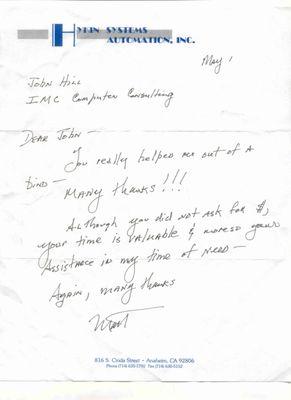 SYSTEMS
AUTOMATION, INC.
May 1
John Hill
IMC Computer Consulting
Dear John -
You really helped me out of a
bind -
Many thanks!!!
Although you did not ask for it,
your time is valuable & moreso your
assistance in my time of need -
Again, many thanks
816 S. Cridа Street - Anaheim, CA 92806